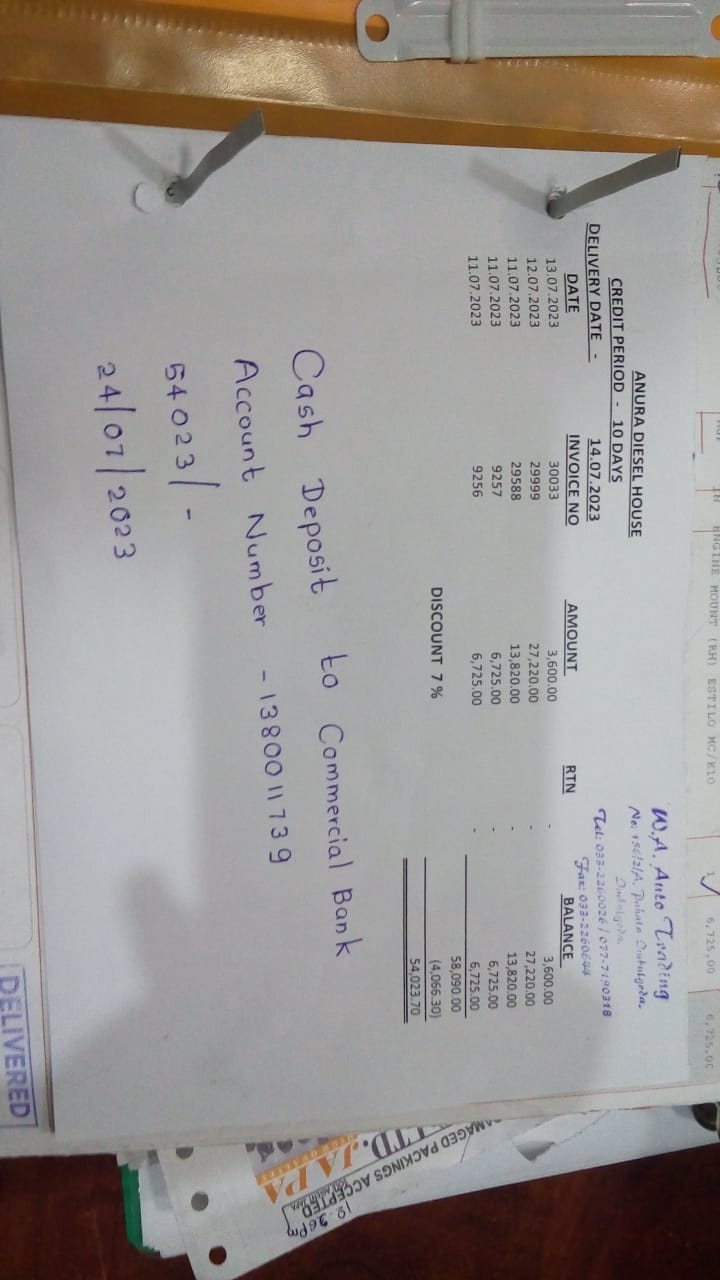 ANURA DIESEL HOUSE
CREDIT PERIOD - 10 DAYS
DELIVERY DATE - 14.07.2023
W.A. Auto Trading
Tel: 033-2260026 / 077-7190318
Fax: 033-2260644
DATE INVOICE NO AMOUNT RTN BALANCE
13.07.2023 30033 3,600.00 - 3,600.00
12.07.2023 29999 27,220.00 - 27,220.00
11.07.2023 29588 13,820.00 - 13,820.00
11.07.2023 9257 6,725.00 6,725.00
11.07.2023 9256 6,725.00 - 6,725.00
58,090.00
DISCOUNT 7 % (4,066.30)
54,023.70
Cash Deposit to Commercial Bank
Account Number - 1380011739
54023/-
24/07/2023
DELIVERED
ENGINE MOUNT (RH) ESTILO MC/K10 1 6,725.00 6,725.00
PACKINGS ACCEPTED
LTD. JAPA